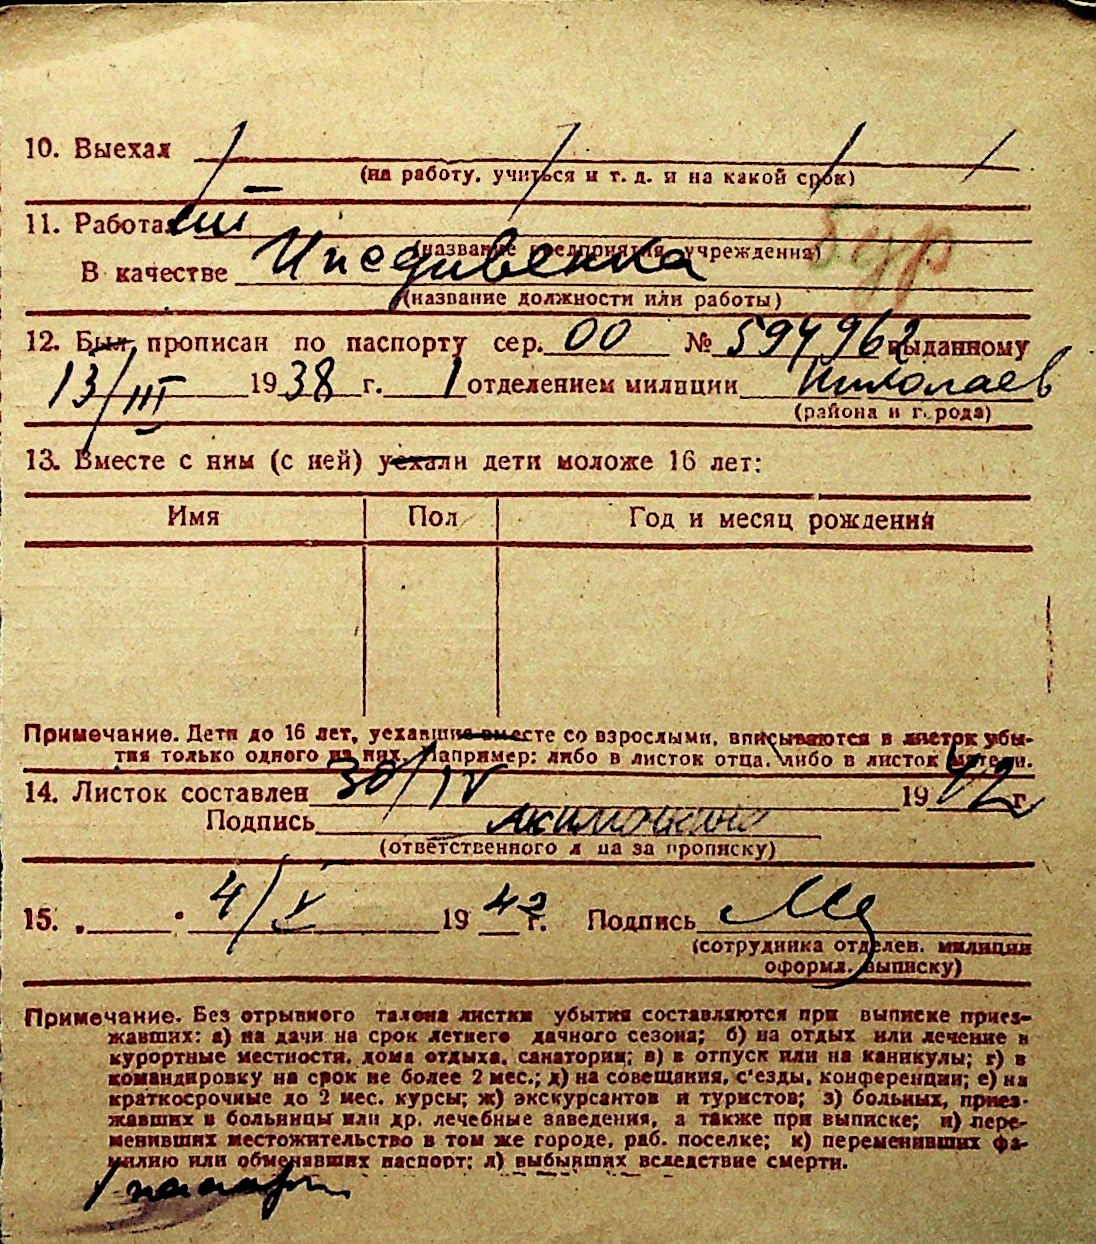 10. Выехал
(на работу, учиться и т. д. и на какой срок)
11. Работал
(название предприятия, учреждения)
В качестве Иждивенка
(название должности или работы)
12. Был прописан по паспорту сер. 00 № 594962 выданному
13/III 1938 г. 1 отделением милиции Николаев
(района и города)
13. Вместе с ним (с ней) уехали дети моложе 16 лет:
Имя Пол Год и месяц рождения
Примечание. Дети до 16 лет, уехавшие вместе со взрослыми, вписываются в листок убы-
тия только одного из них. Например: либо в листок отца, либо в листок матери.
14. Листок составлен 30/IV 1942 г.
Подпись
(ответственного лица за прописку)
15. 4/V 1942 г. Подпись
(сотрудника отделен. милиции
оформл. выписку)
Примечание. Без отрывного талона листки убытия составляются при выписке приез-
жавших: а) на дачи на срок летнего дачного сезона; б) на отдых или лечение в
курортные местности, дома отдыха, санатории; в) в отпуск или на каникулы; г) в
командировку на срок не более 2 мес.; д) на совещания, с'езды, конференции; е) на
краткосрочные до 2 мес. курсы; ж) экскурсантов и туристов; з) больных, приез-
жавших в больницы или др. лечебные заведения, а также при выписке; и) пере-
менивших местожительство в том же городе, раб. поселке; к) переменивших фа-
милию или обменявших паспорт; л) выбывших вследствие смерти.